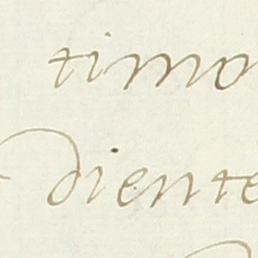 timo
diente